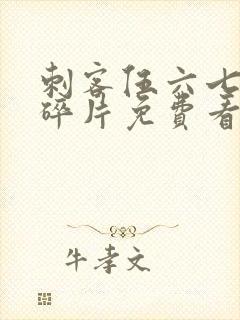 刺客伍六七
碎片免费看
牛孝文